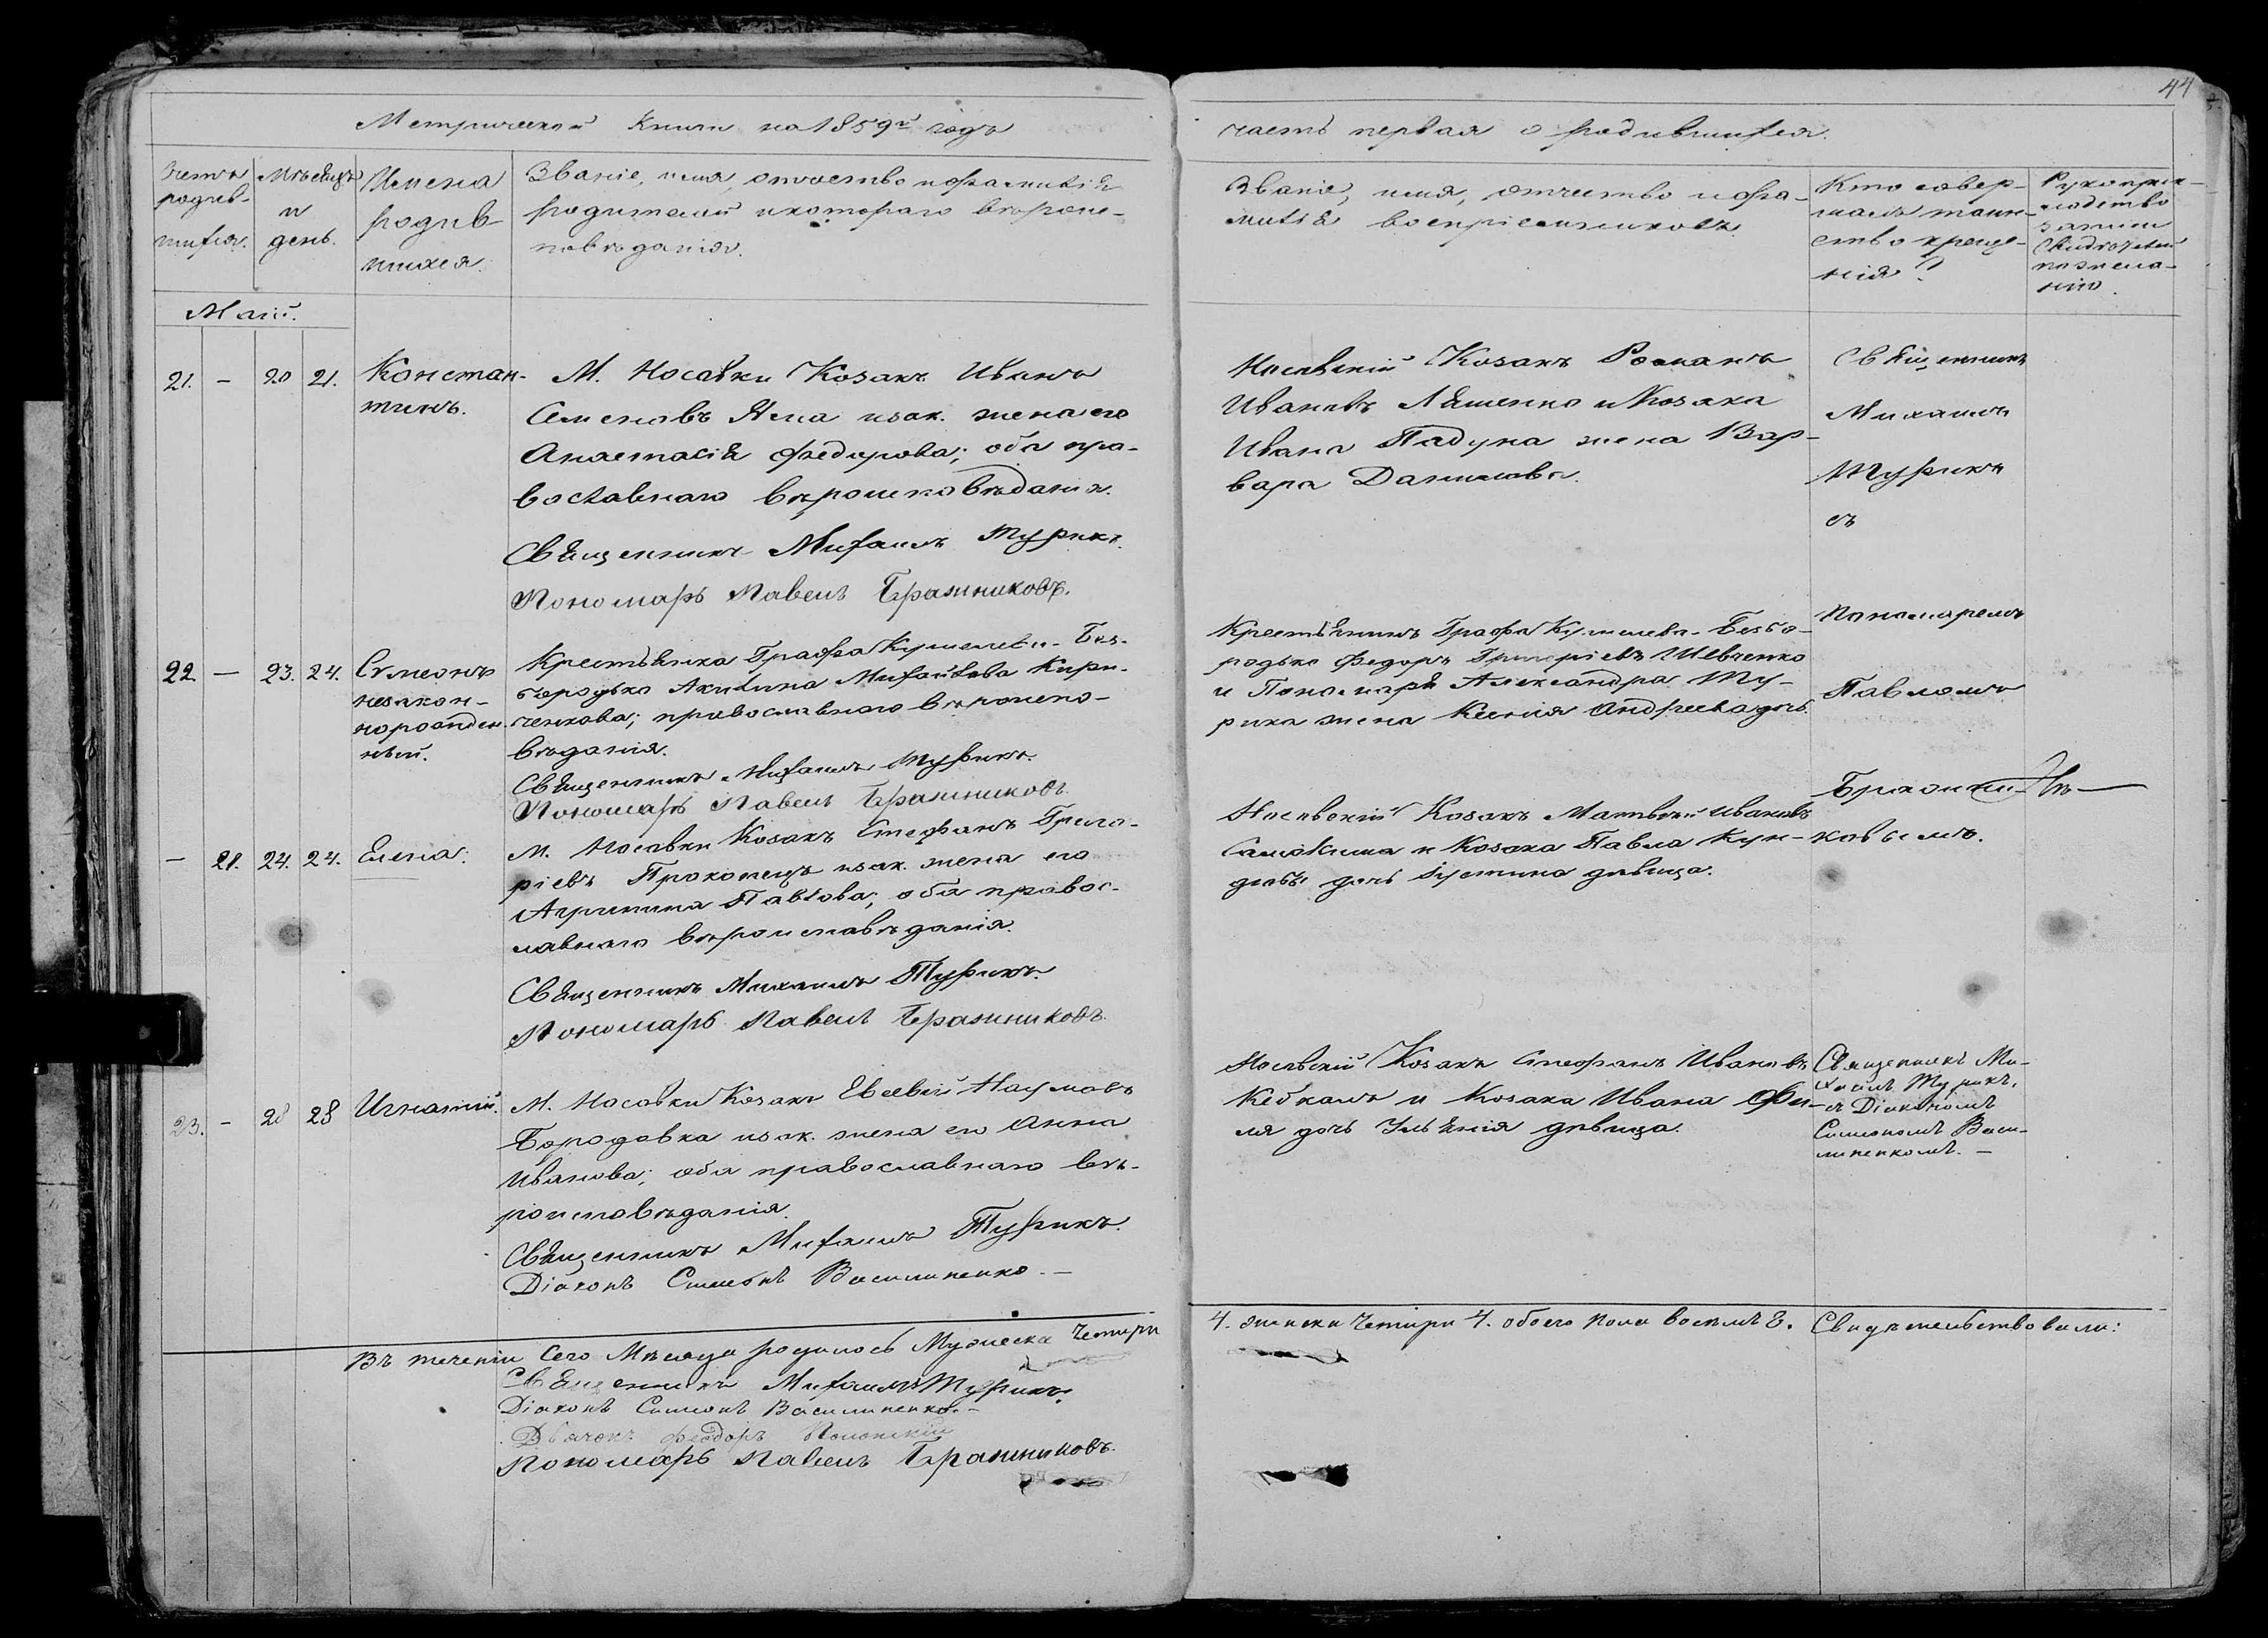 44
Метрической Книги на 1859й годъ
часть первая о родившихся.
Счетъ родив-шихся.
Мѣсяцъ и день.
Имена родив-шихся.
Званіе, имя, отчество и фамилія
родителей и котораго вѣроиспо-
повѣданія.
Званіе, имя, отчество и фа-
милія воспріемниковъ.
Кто совер-
шалъ таин-
ство креще-
нія?
Рукоприк-
ладство
записи
свидѣтелей
по жела-
нію.
Маій.
21. — 20 21. Констан-
тинъ.
М. Носовки Козакъ Иванъ
Семеновъ Яма и зак. жена его
Анастасія Федорова; оба пра-
вославнаго вѣроисповѣданія.
Священникъ Михаилъ Турикъ.
Пономарь Павелъ Бражниковъ.
Носовскій Козакъ Романъ
Ивановъ Ляшенко и Козака
Ивана Падуна жена Вар-
вара Данилова.
Священникъ
Михаилъ
Турикъ
съ
Пономаремъ
Павломъ
Бражни-
ковымъ.
22. — 23. 24. Сѵмеонъ
незакон-
норожден-
ный.
Крестьянка Графа Кушелева-Без-
бородько Акилина Михайлова Кири-
ченкова; православнаго вѣроиспо-
вѣданія.
Священникъ Михаилъ Турикъ.
Пономарь Павелъ Бражниковъ.
Крестьянинъ Графа Кушелева-Безбо-
родько Федоръ Григоріевъ Шевченко
и Пономаря Александра Ту-
рика жена Ксенія Андреева дочь.
— 21. 24. 24. Елена.
М. Носовки Козакъ Стефанъ Григо-
ріевъ Прокопецъ и зак. жена его
Агрипина Павлова; оба правос-
лавнаго вѣроисповѣданія.
Священникъ Михаилъ Турикъ.
Пономарь Павелъ Бражниковъ.
Носовскій Козакъ Матвѣй Ивановъ
Самокиша и Козака Павла
дочь Іустина дѣвица.
23. — 28 28 Игнатій.
М. Носовки Козакъ Евсевій Наумовъ
Бородавка и зак. жена его Анна
Иванова; оба православнаго вѣ-
роисповѣданія.
Священникъ Михаилъ Турикъ.
Діаконъ Симеонъ Василипенко. —
Носовскій Козакъ Стефанъ Ивановъ
Кебкалъ и Козака Ивана Фи-
ля дочь Ульянія дѣвица.
Священникъ Ми-
хаилъ Турикъ,
съ Діакономъ
Симеономъ Васи-
липенкомъ. —
Въ теченіи сего Мѣсяца родилось Мужеска четыри
4. женска четыри 4. обоего пола восемъ 8. Свидѣтельствовали:
Священникъ Михаилъ Турикъ.
Діаконъ Симеонъ Василипенко. —
Дьячокъ Феодоръ
Пономарь Павелъ Бражниковъ.